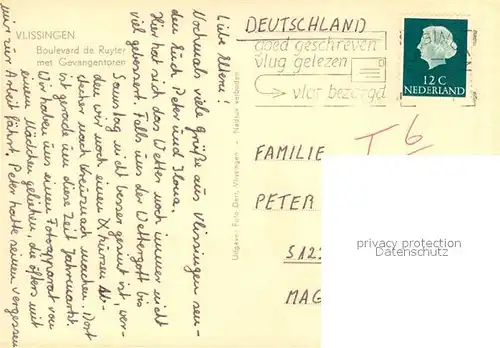 VLISSINGEN
Boulevard de Ruyter
met Gevangentoren
Liebe Eltern!
Nochmals viele Grüße aus Vlissingen sen-
den Euch Peter und Ilona.
Hier hat sich das Wetter noch immer nicht
viel gebessert. Falls uns der Wettergott bis
Samstag nicht besser gesinnt ist, wer-
den wir noch einen kurzen Ab-
stecher nach Kreuznach machen. Dort
ist gerade um diese Zeit Jahrmarkt.
Wir haben uns einen Fotoapparat von
einem Mädchen geliehen, die öfters mit
mir zur Arbeit fährt. Peter hatte seinen vergessen
Uitgave: Foto Dert, Vlissingen - Nadruk verboden
DEUTSCHLAND
goed geschreven
vlug gelezen
vlot bezorgd
12 C
NEDERLAND
T 6
FAMILIE
PETER
S122
MAG
privacy protection
Datenschutz